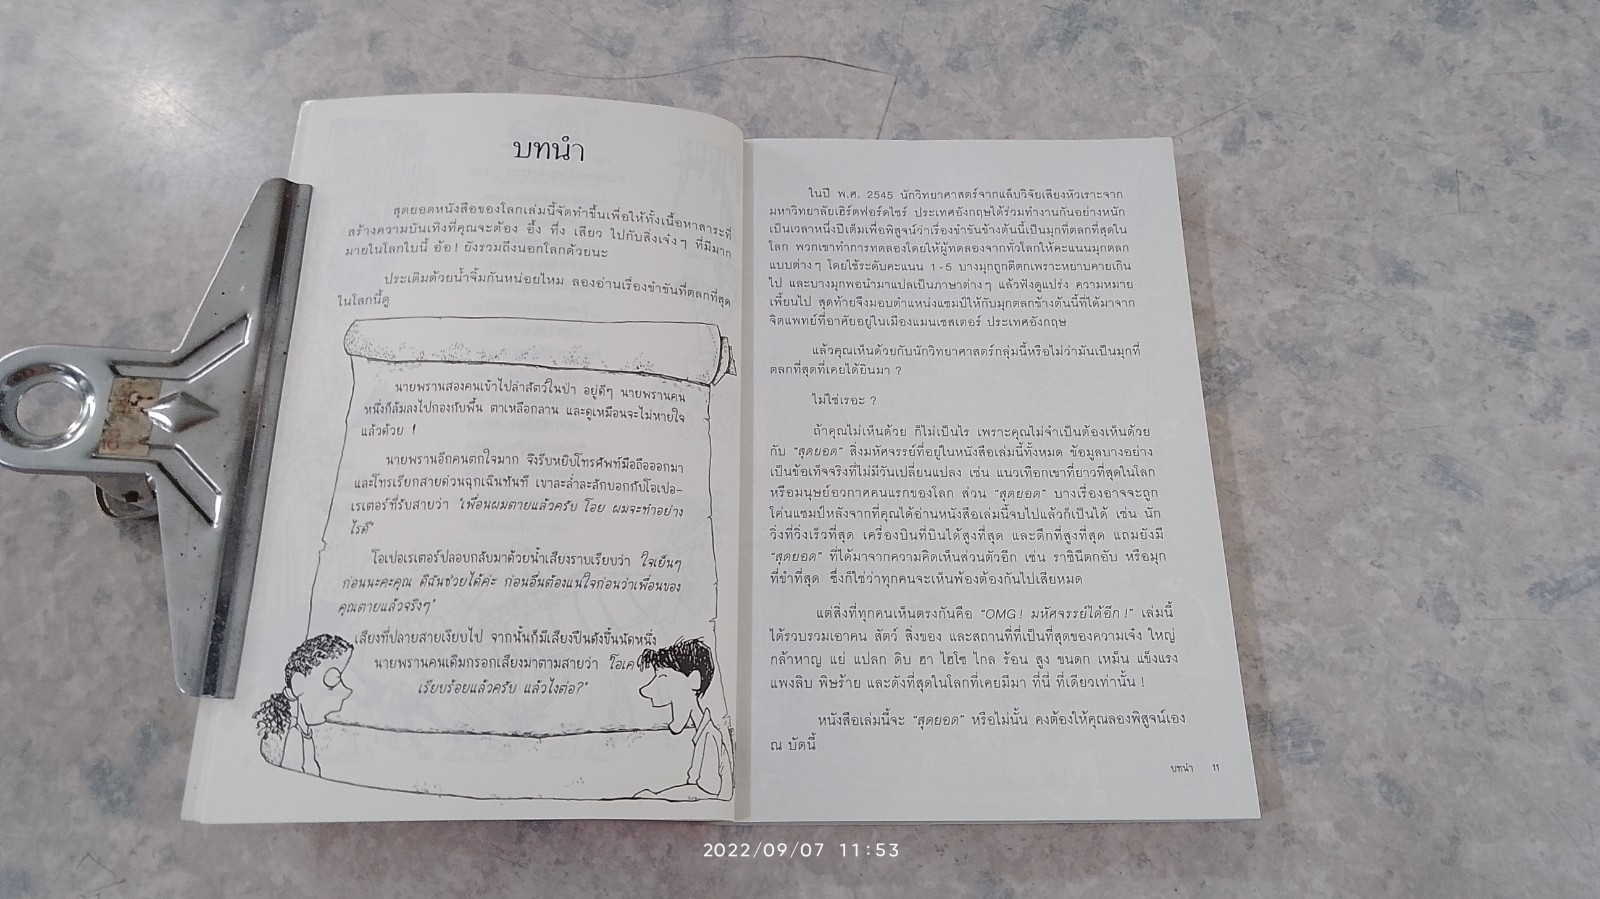 บทนำ
สุดยอดหนังสือของโลกเล่มนี้จัดทำขึ้นเพื่อให้ทั้งเนื้อหาสาระที่
สร้างความบันเทิงที่คุณจะต้อง อึ้ง ทึ่ง เสียว ไปกับสิ่งเจ๋งๆ ที่มีมาก
มายในโลกใบนี้ อ้อ! ยังรวมถึงนอกโลกด้วยนะ
ประเดิมด้วยน้ำจิ้มกันหน่อยไหม ลองอ่านเรื่องขำขันที่ตลกที่สุด
ในโลกนี้ดู
นายพรานสองคนเข้าไปล่าสัตว์ในป่า อยู่ดีๆ นายพรานคน
หนึ่งก็ล้มลงไปกองกับพื้น ตาเหลือกลาน และดูเหมือนจะไม่หายใจ
แล้วด้วย !
นายพรานอีกคนตกใจมาก จึงรีบหยิบโทรศัพท์มือถือออกมา
และโทรเรียกสายด่วนฉุกเฉินทันที เขาละล่ำละลักบอกกับโอเปอ-
เรเตอร์ที่รับสายว่า "เพื่อนผมตายแล้วครับ โอย ผมจะทำอย่าง
ไรดี"
โอเปอเรเตอร์ปลอบกลับมาด้วยน้ำเสียงราบเรียบว่า ใจเย็นๆ
ก่อนนะคะคุณ ดิฉันช่วยได้ค่ะ ก่อนอื่นต้องแน่ใจก่อนว่าเพื่อนของ
คุณตายแล้วจริงๆ"
เสียงที่ปลายสายเงียบไป จากนั้นก็มีเสียงปืนดังขึ้นนัดหนึ่ง
นายพรานคนเดิมกรอกเสียงมาตามสายว่า "โอเค
เรียบร้อยแล้วครับ แล้วไงต่อ?"
ในปี พ.ศ. 2545 นักวิทยาศาสตร์จากแล็บวิจัยเสียงหัวเราะจาก
มหาวิทยาลัยเฮิร์ตฟอร์ดไชร์ ประเทศอังกฤษได้ร่วมทำงานกันอย่างหนัก
เป็นเวลาหนึ่งปีเต็มเพื่อพิสูจน์ว่าเรื่องขำขันข้างต้นนี้เป็นมุกที่ตลกที่สุดใน
โลก พวกเขาทำการทดลองโดยให้ผู้ทดลองจากทั่วโลกให้คะแนนมุกตลก
แบบต่างๆ โดยใช้ระดับคะแนน 1-5 บางมุกถูกตีตกเพราะหยาบคายเกิน
ไป และบางมุกพอนำมาแปลเป็นภาษาต่างๆ แล้วฟังดูแปร่ง ความหมาย
เพี้ยนไป สุดท้ายจึงมอบตำแหน่งแชมป์ให้กับมุกตลกข้างต้นนี้ที่ได้มาจาก
จิตแพทย์ที่อาศัยอยู่ในเมืองแมนเชสเตอร์ ประเทศอังกฤษ
แล้วคุณเห็นด้วยกับนักวิทยาศาสตร์กลุ่มนี้หรือไม่ว่ามันเป็นมุกที่
ตลกที่สุดที่เคยได้ยินมา ?
ไม่ใช่เรอะ ?
ถ้าคุณไม่เห็นด้วย ก็ไม่เป็นไร เพราะคุณไม่จำเป็นต้องเห็นด้วย
กับ "สุดยอด" สิ่งมหัศจรรย์ที่อยู่ในหนังสือเล่มนี้ทั้งหมด ข้อมูลบางอย่าง
เป็นข้อเท็จจริงที่ไม่มีวันเปลี่ยนแปลง เช่น แนวเทือกเขาที่ยาวที่สุดในโลก
หรือมนุษย์อวกาศคนแรกของโลก ส่วน "สุดยอด" บางเรื่องอาจจะถูก
โค่นแชมป์หลังจากที่คุณได้อ่านหนังสือเล่มนี้จบไปแล้วก็เป็นได้ เช่น นัก
วิ่งที่วิ่งเร็วที่สุด เครื่องบินที่บินได้สูงที่สุด และตึกที่สูงที่สุด แถมยังมี
"สุดยอด" ที่ได้มาจากความคิดเห็นส่วนตัวอีก เช่น ราชินีตกอับ หรือมุก
ที่ขำที่สุด ซึ่งก็ใช่ว่าทุกคนจะเห็นพ้องต้องกันไปเสียหมด
แต่สิ่งที่ทุกคนเห็นตรงกันคือ "OMG! มหัศจรรย์ได้อีก!" เล่มนี้
ได้รวบรวมเอาคน สัตว์ สิ่งของ และสถานที่ที่เป็นที่สุดของความเจ๋ง ใหญ่
กล้าหาญ แย่ แปลก ดิบ ฮา ไฮโซ ไกล ร้อน สูง ขนดก เหม็น แข็งแรง
แพงลิบ พิษร้าย และดังที่สุดในโลกที่เคยมีมา ที่นี่ ที่เดียวเท่านั้น !
หนังสือเล่มนี้จะ "สุดยอด" หรือไม่นั้น คงต้องให้คุณลองพิสูจน์เอง
ณ บัดนี้
บทนำ 11
2022/09/07 11:53